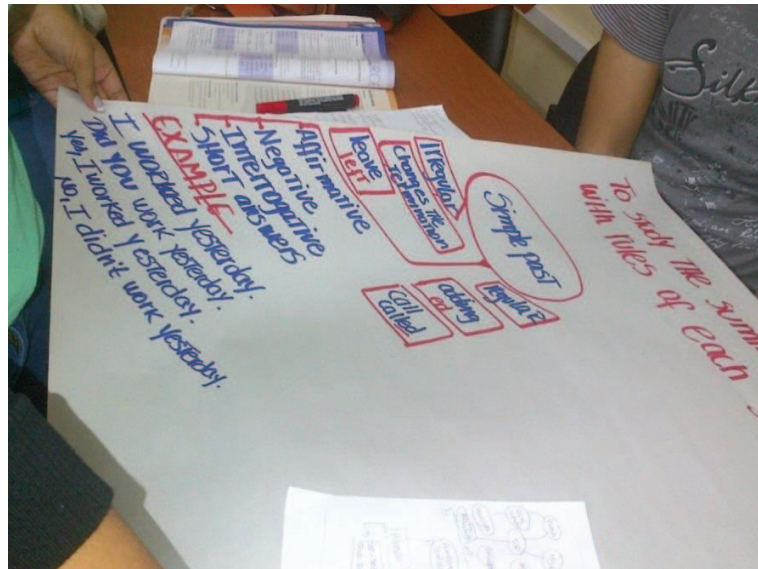 To study the
with rules of each
Simple past
Irregular
Changes the
termination
leave
left
regular
adding
ed
call
called
Affirmative
Negative
Interrogative
Short answers
EXAMPLE
I worked yesterday.
Did you work yesterday.
Yes, I worked yesterday.
No, I didn't work yesterday.
Silk